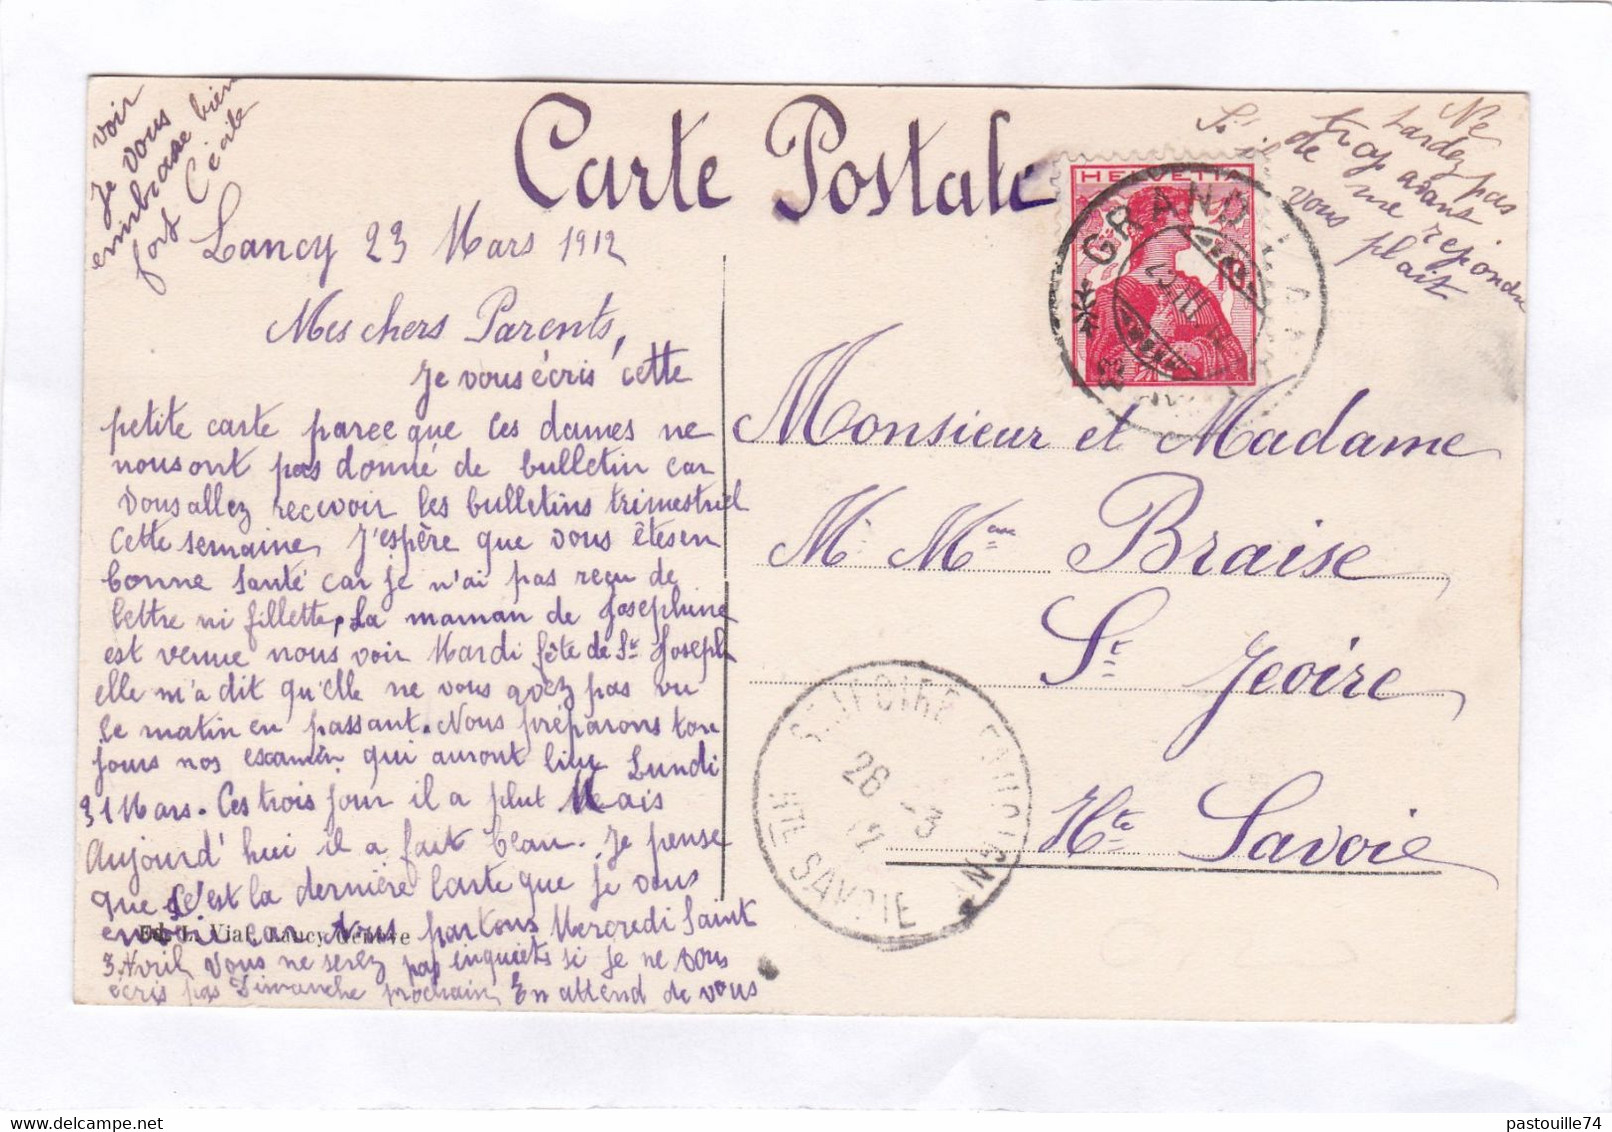 Carte Postale
Lancy 23 Mars 1912
Mes chers Parents,
Je vous écris cette
petite carte parce que ces dames ne
nous ont pas donné de bulletin car
vous allez recevoir les bulletins trimestriel
cette semaine, J'espère que vous êtes en
bonne santé car je n'ai pas reçu de
lettre ni fillette, La maman de Josephine
est venue nous voir Mardi fête de St Joseph
elle m'a dit qu'elle ne vous avez pas vu
le matin en passant. Nous préparons tou
jours nos examen qui auront lieu Lundi
31 Mars. Ces trois jour il a plut Mais
Aujourd'hui il a fait beau. Je pense
que c'est la dernière carte que je vous
envoie car nous partons Mercredi Saint
3 Avril, Vous ne serez pas inquiets si je ne vous
écris pas Dimanche prochain, En attend de vous
voir
Je vous
embrasse bien
fort Cécile
Ne
tardez pas
trop avans
de me repondre
S'il vous plait
HELVETIA
10
GRAND LANCY
23 III 12
Monsieur et Madame
Mr Mme Braise
St Jeoire
Hte Savoie
ST JEOIRE FAUCIGNY
26 -3
12
HTE SAVOIE
Ed. L. Vial, Lancy Genève
pastouille74
delcampe.net